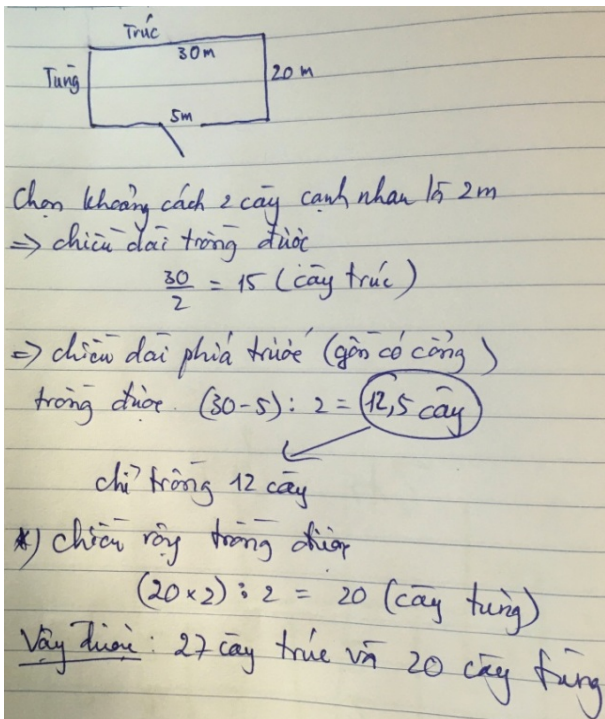 Trúc
30m
Tùng
20 m
5m
Chọn khoảng cách 2 cây cạnh nhau là 2m
=> chiều dài trồng được
30/2 = 15 (cây trúc)
=> chiều dài phía trước (gồm có cổng)
trồng được. (30-5): 2 = 12,5 cây
chỉ trồng 12 cây
*) chiều rộng trồng được
(20×2): 2 = 20 (cây tùng)
Vậy được: 27 cây trúc và 20 cây tùng